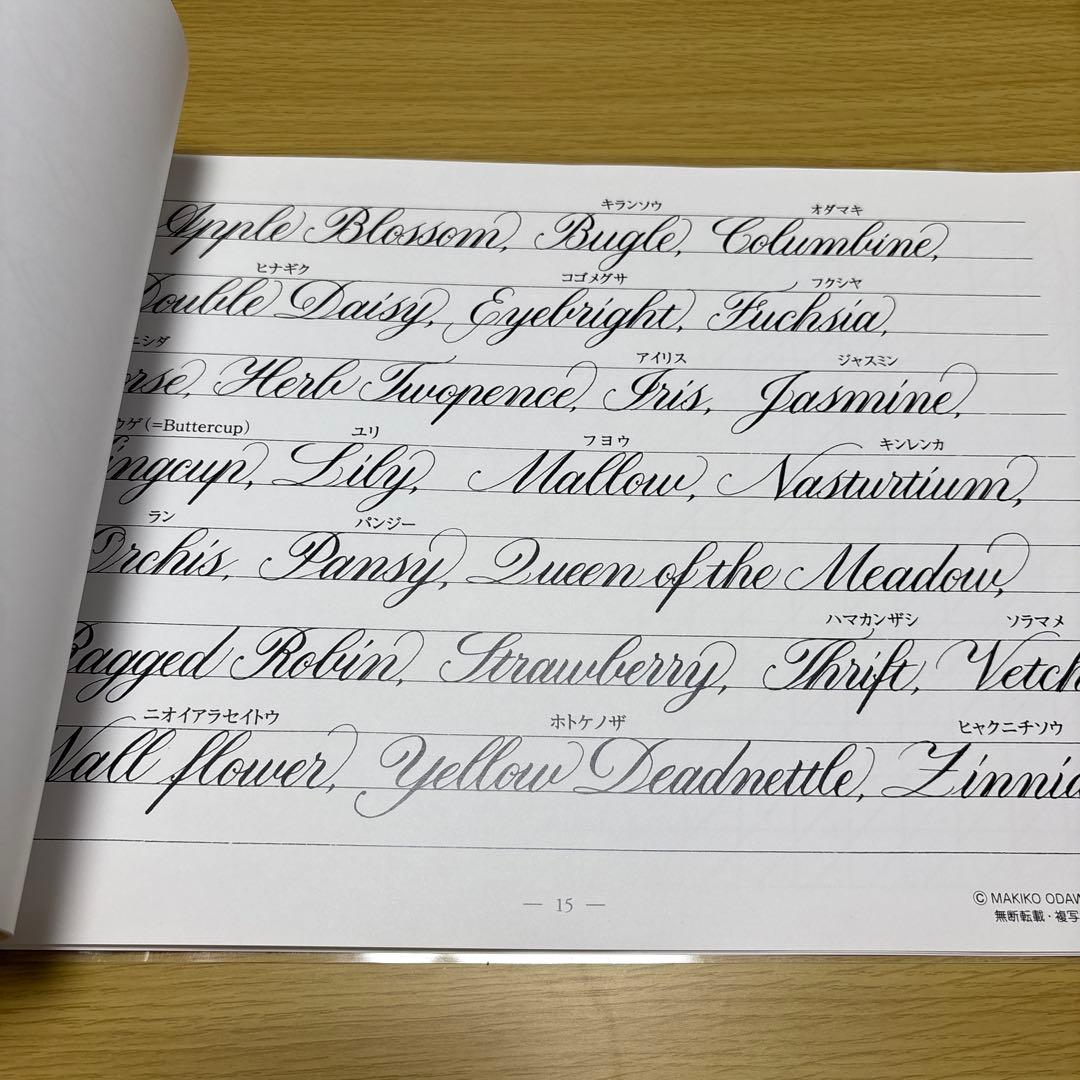 キランソウ オダマキ
Apple Blossom, Bugle, Columbine,
ヒナギク コゴメグサ フクシヤ
Double Daisy, Eyebright, Fuchsia,
ニシダ アイリス ジャスミン
rse, Herb Twopence, Iris, Jasmine,
ウゲ(=Buttercup) ユリ フヨウ キンレンカ
ingcup, Lily, Mallow, Nasturtium,
ラン パンジー
Orchis, Pansy, Queen of the Meadow,
ハマカンザシ ソラマメ
Ragged Robin, Strawberry, Thrift, Vetch
ニオイアラセイトウ ホトケノザ ヒャクニチソウ
Wall flower, Yellow Deadnettle, Zinnia
— 15 —
© MAKIKO ODAW
無断転載・複写